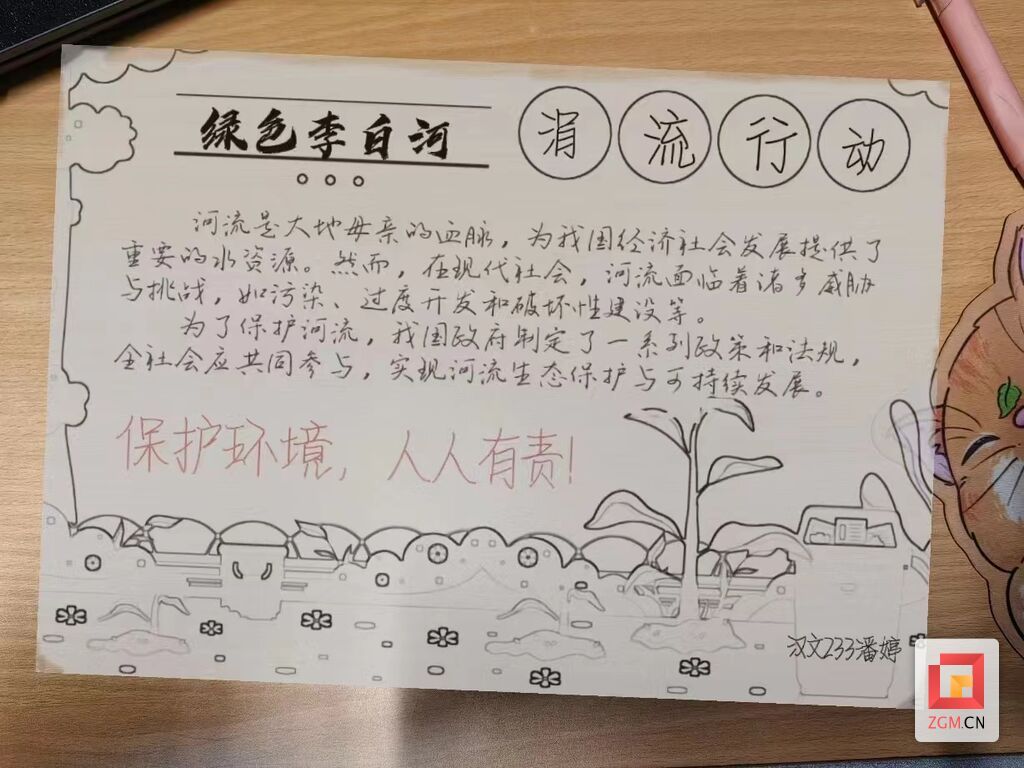 绿色李白河
涓流行动
河流是大地母亲的血脉，为我国经济社会发展提供了
重要的水资源。然而，在现代社会，河流面临着诸多威胁
与挑战，如污染、过度开发和破坏性建设等。
为了保护河流，我国政府制定了一系列政策和法规，
全社会应共同参与，实现河流生态保护与可持续发展。
保护环境，人人有责！
汉文233潘婷
ZGM.CN